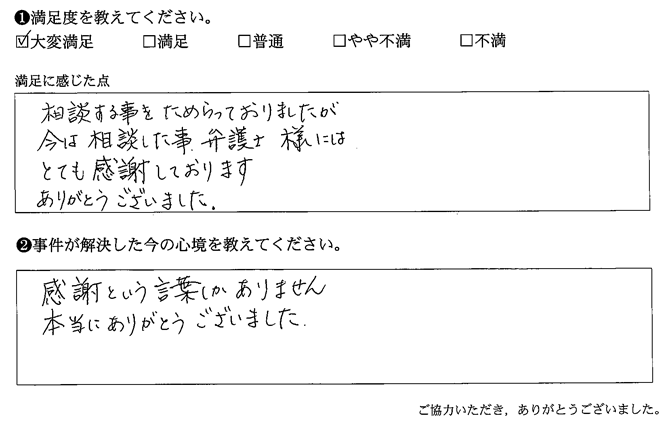 ❶満足度を教えてください。
☑大変満足 □満足 □普通 □やや不満 □不満
満足に感じた点
相談する事をためらっておりましたが
今は相談した事、弁護士様には
とても感謝しております
ありがとうございました。
❷事件が解決した今の心境を教えてください。
感謝という言葉しかありません
本当にありがとうございました.
ご協力いただき，ありがとうございました。